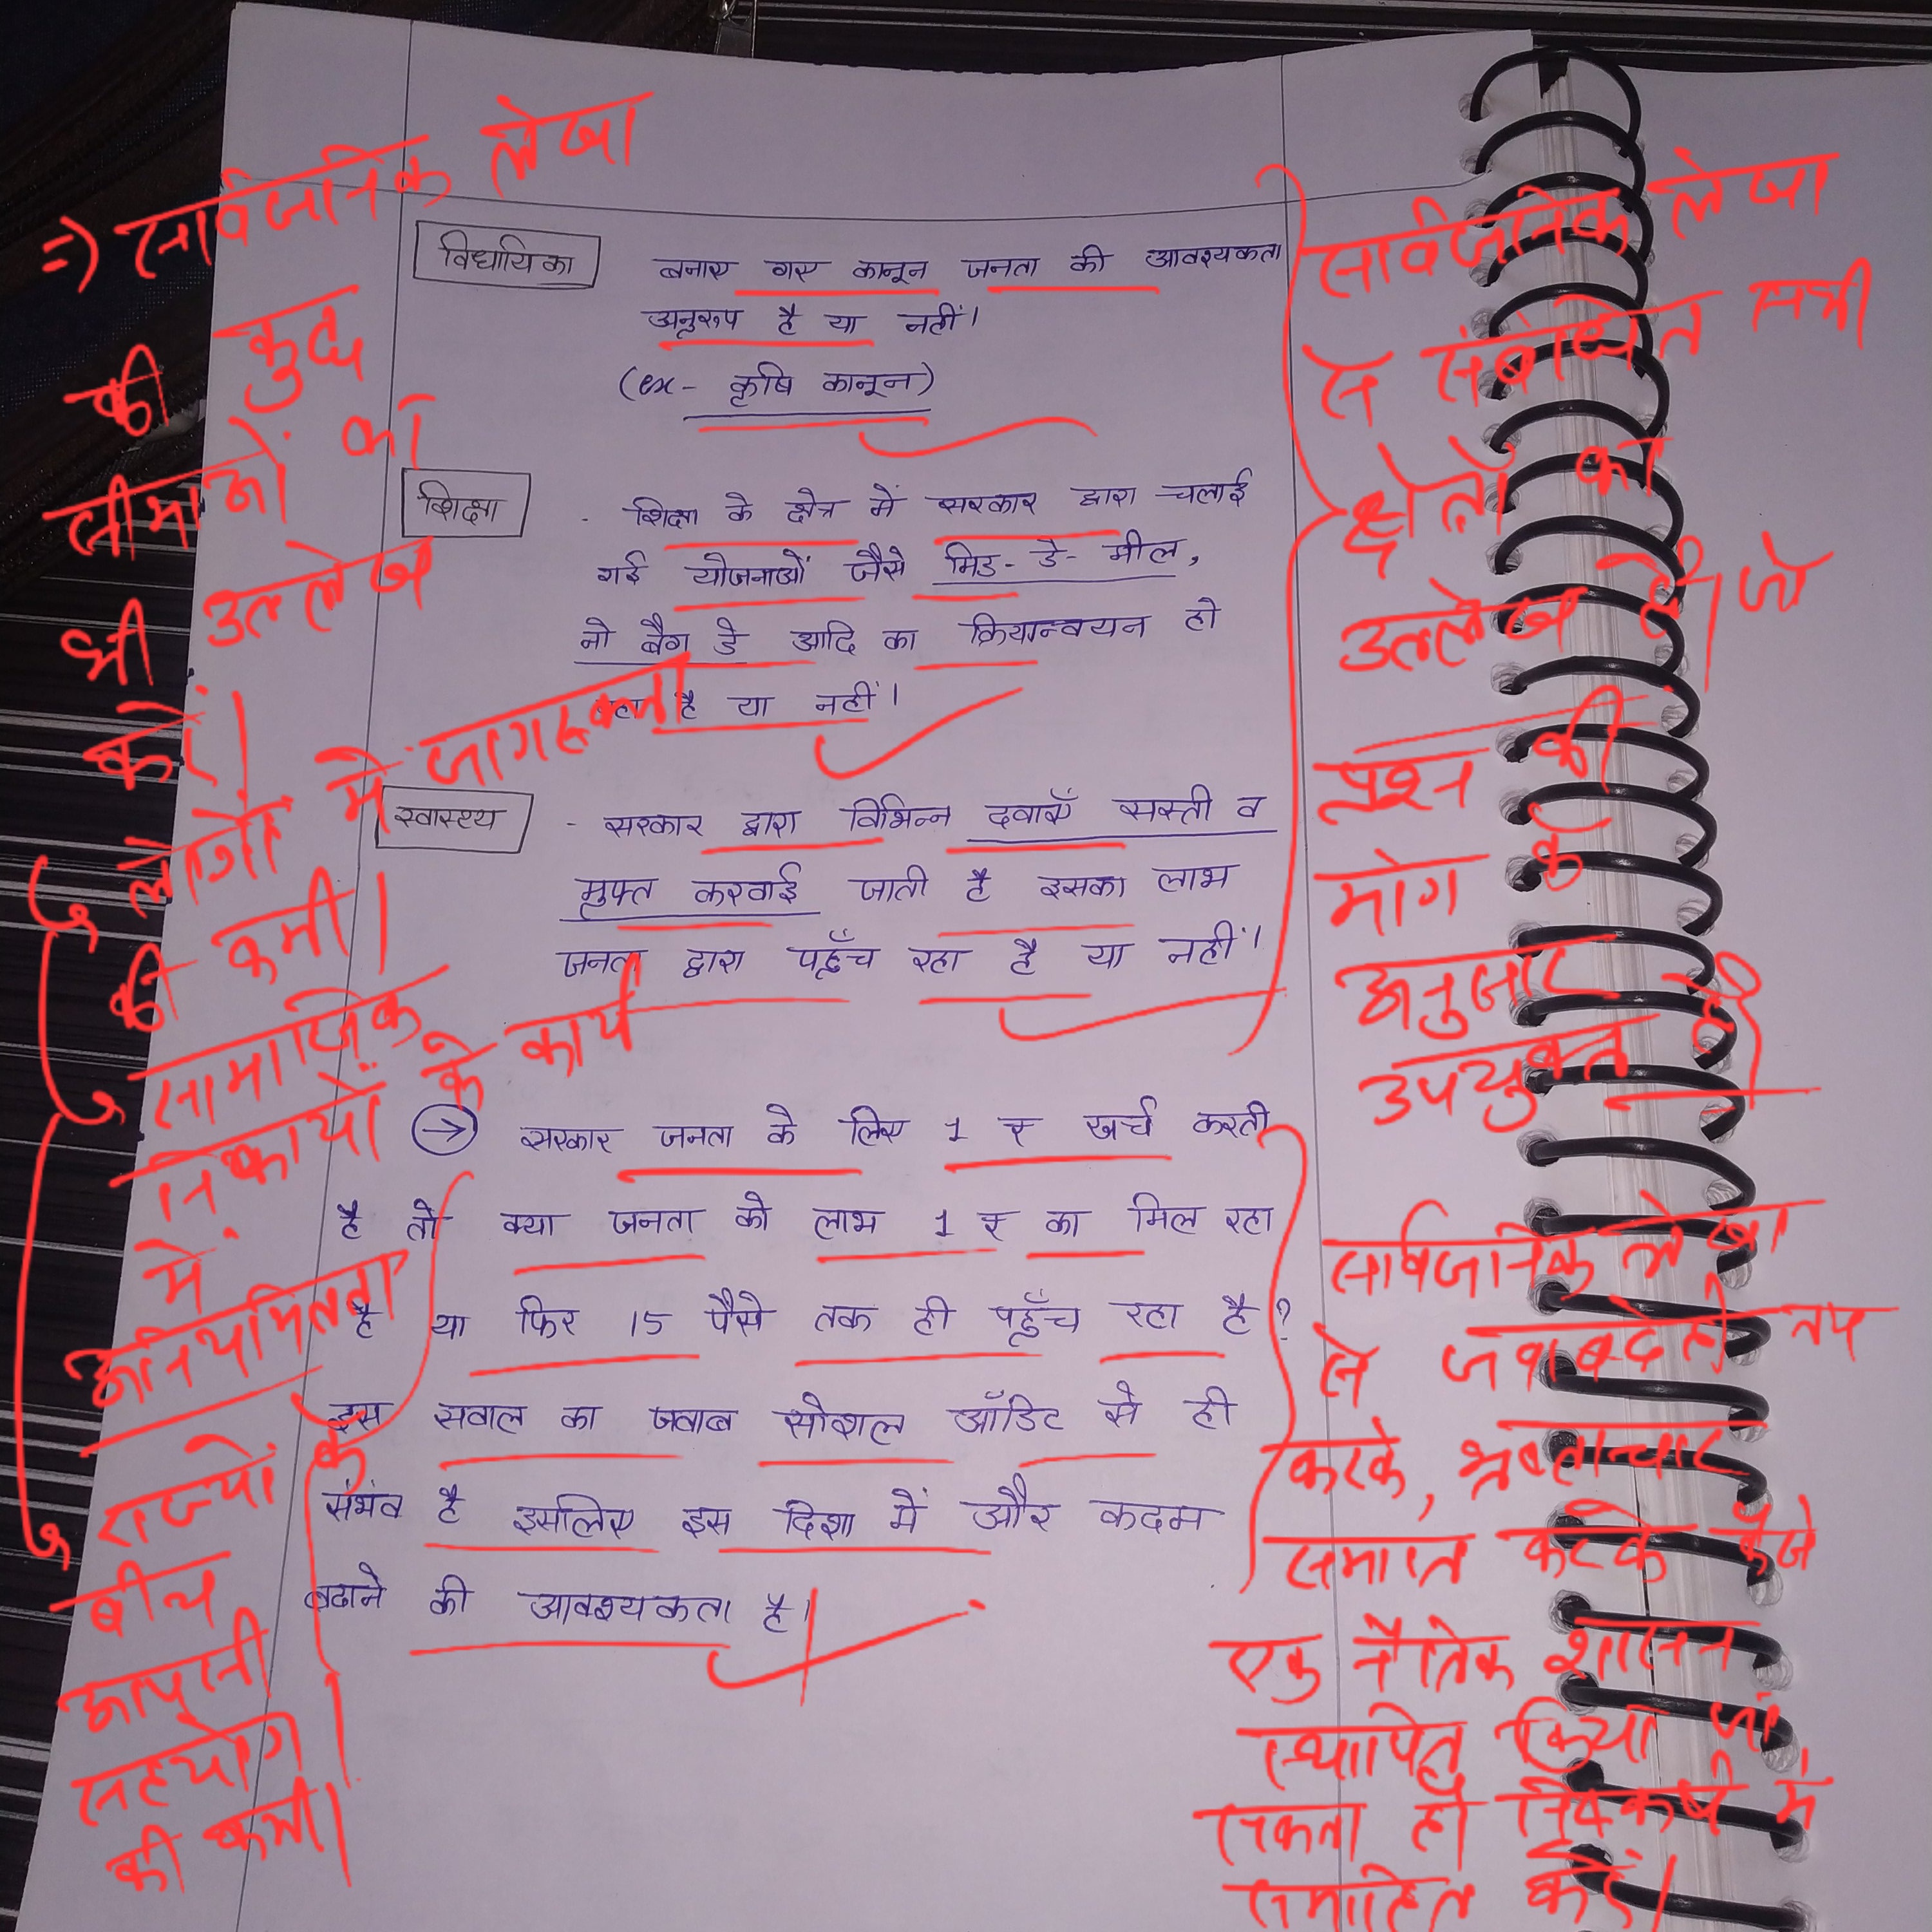 विधायिका बनाए गए कानून जनता की आवश्यकता
अनुरूप है या नहीं।
(ex- कृषि कानून)
शिक्षा - शिक्षा के क्षेत्र में सरकार द्वारा चलाई
गई योजनाओं जैसे मिड-डे-मील,
नो बैग डे आदि का क्रियान्वयन हो
रहा है या नहीं।
स्वास्थ्य - सरकार द्वारा विभिन्न दवाएँ सस्ती व
मुफ्त करवाई जाती है इसका लाभ
जनता द्वारा पहुँच रहा है या नहीं।
→ सरकार जनता के लिए 1 ₹ खर्च करती
है तो क्या जनता को लाभ 1 ₹ का मिल रहा
है या फिर 15 पैसे तक ही पहुँच रहा है?
इस सवाल का जवाब सोशल ऑडिट से ही
संभंव है इसलिए इस दिशा में और कदम
बढाने की आवश्यकता है।
=) सार्वजनिक लेखा
की कुछ
सीमाओं का
भी उल्लेख
करें।
लोगों में जागरूकता
की कमी।
सामाजिक
निकायों के कार्य
में
अनियमितता
राज्यों के
बीच
आपसी
सहयोग
की कमी।
सार्वजनिक लेखा
से संबंधित सभी
क्षेत्रों का
उल्लेख है। जो
प्रश्न की
मांग के
अनुसार
उपयुक्त है।
सार्वजनिक लेखा
से जवाबदेही तय
करके, भ्रष्टाचार
समाप्त करके कैसे
एक नैतिक शासन
स्थापित किया जा
सकता है। निष्कर्ष में
समाहित करें।